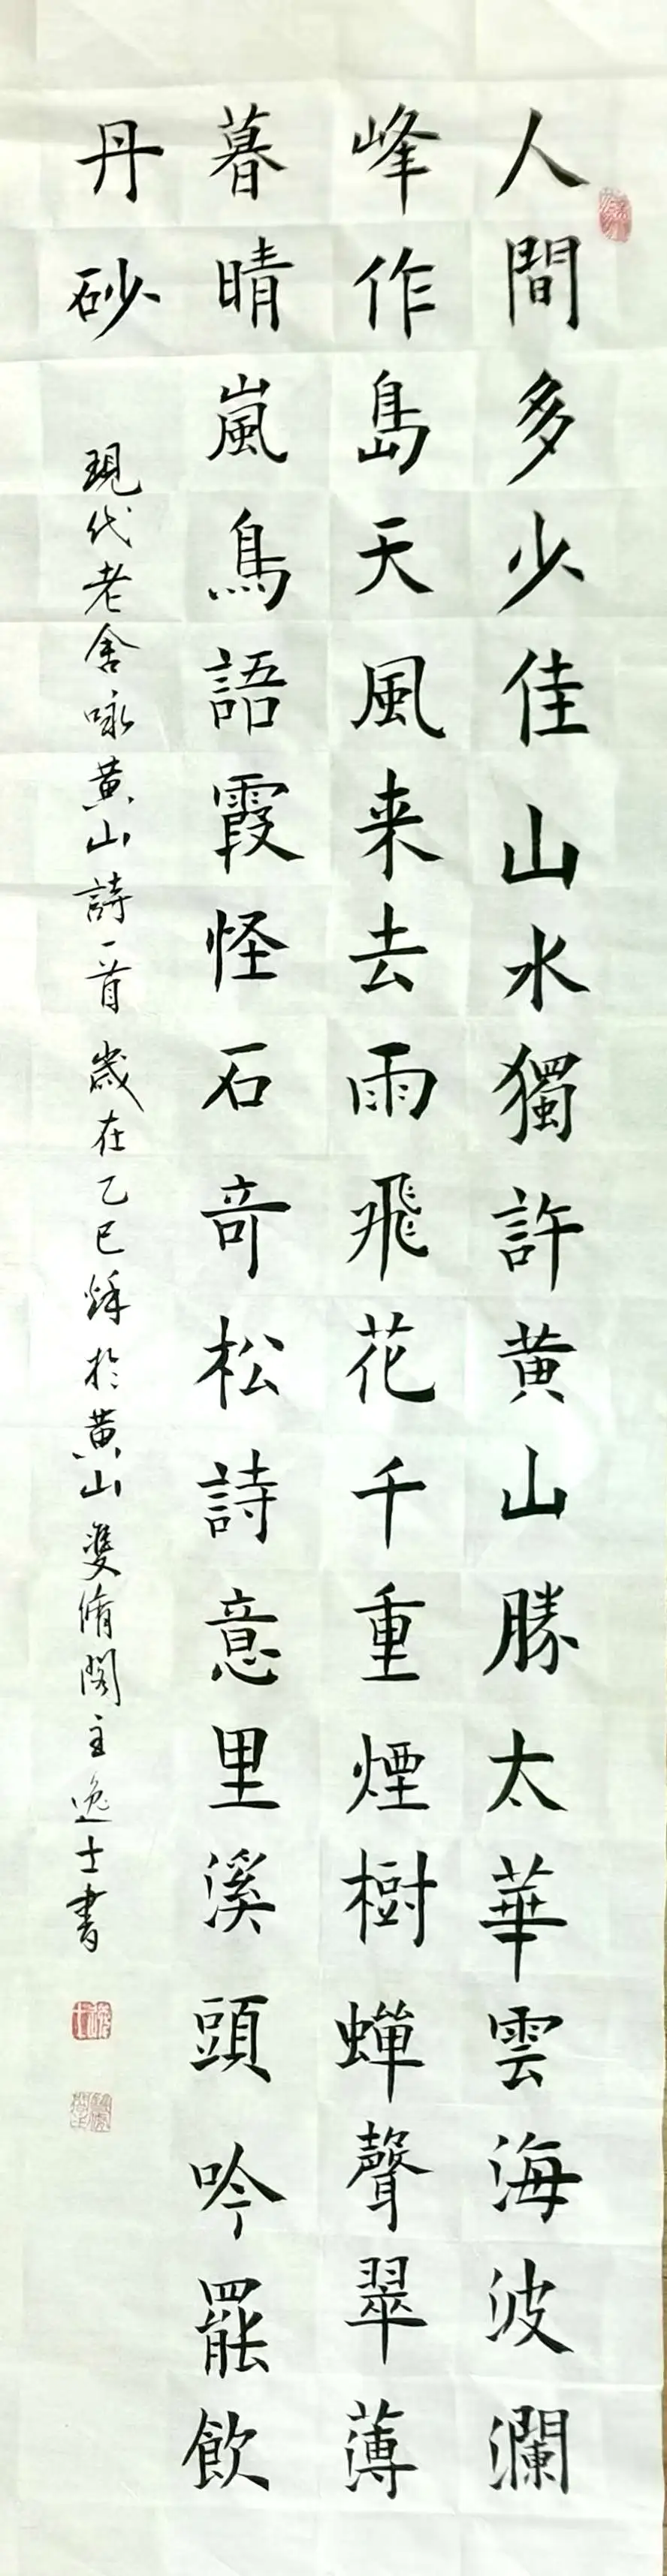 人間多少佳山水獨許黄山勝太華雲海波瀾
峰作島天風来去雨飛花千重煙樹蟬聲翠薄
暮晴嵐鳥語霞怪石奇松詩意里溪頭吟罷飲
丹砂
現代老舍咏黄山詩一首歲在乙巳秌於黄山雙脩閣主逸士書